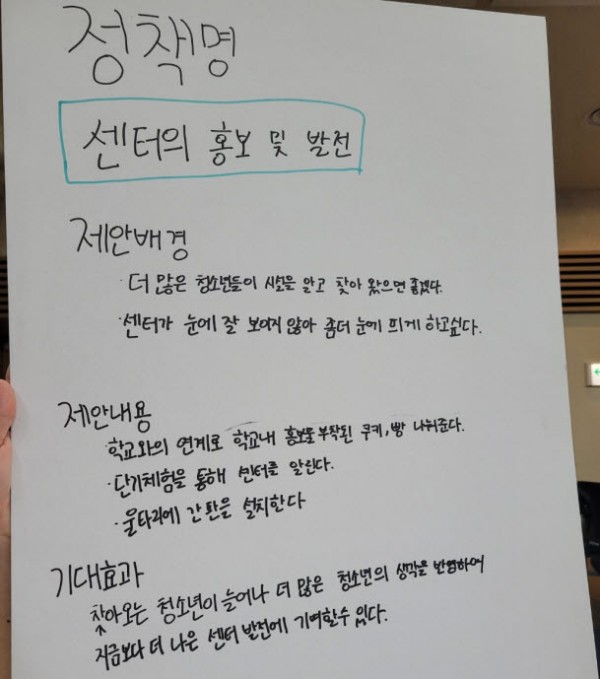 정책명
센터의 홍보 및 발전
제안배경
· 더 많은 청소년들이 시설을 알고 찾아 왔으면 좋겠다.
· 센터가 눈에 잘 보이지 않아 좀더 눈에 띄게 하고싶다.
제안내용
· 학교와의 연계로 학교내 홍보물 부착된 쿠키, 빵 나눠준다.
· 단기체험을 통해 센터를 알린다.
· 울타리에 간판을 설치한다
기대효과
찾아오는 청소년이 늘어나 더 많은 청소년의 생각을 반영하여
지금보다 더 나은 센터 발전에 기여할수 있다.